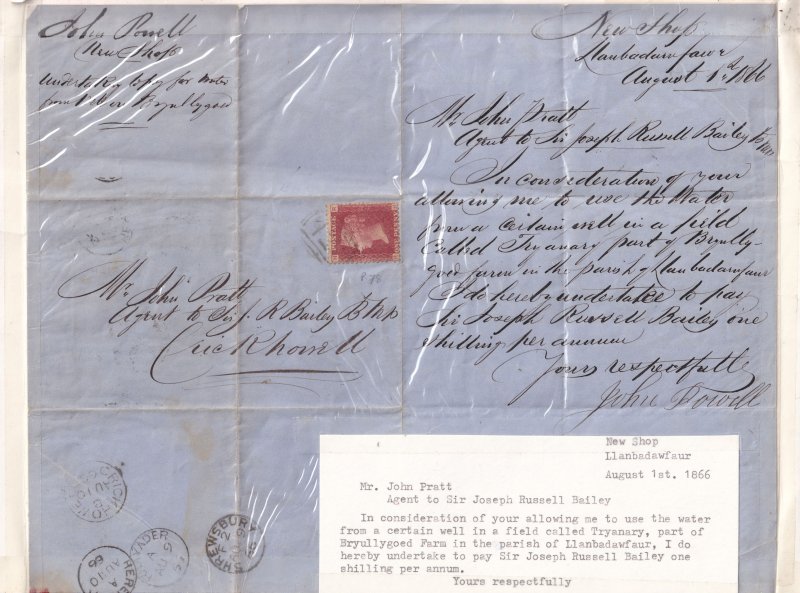 John Powell
New Shop
Undertaking to pay for Water
from Well on Bryullygoed
New Shop
Llanbadarnfawr
August 1st 1866
Mr John Pratt
Agent to Sir Joseph Russell Bailey Bt
In consideration of your
allowing me to use the Water
from a certain well in a field
Called Tryanary part of Bryully-
goed farm in the parish of Llanbadarnfaur
I do hereby undertake to pay
Sir Joseph Russell Bailey one
shilling per annum
Yours respectfully
John Powell
POSTAGE
ONE PENNY
P. 78
Mr John Pratt
Agent to Sir J. R Bailey Bt
Crickhowell
CRICKHOWELL
SHREWSBURY
HERE
AU 10
66
New Shop
Llanbadawfaur
August 1st. 1866
Mr. John Pratt
Agent to Sir Joseph Russell Bailey
In consideration of your allowing me to use the water
from a certain well in a field called Tryanary, part of
Bryullygoed Farm in the parish of Llanbadawfaur, I do
hereby undertake to pay Sir Joseph Russell Bailey one
shilling per annum.
Yours respectfully